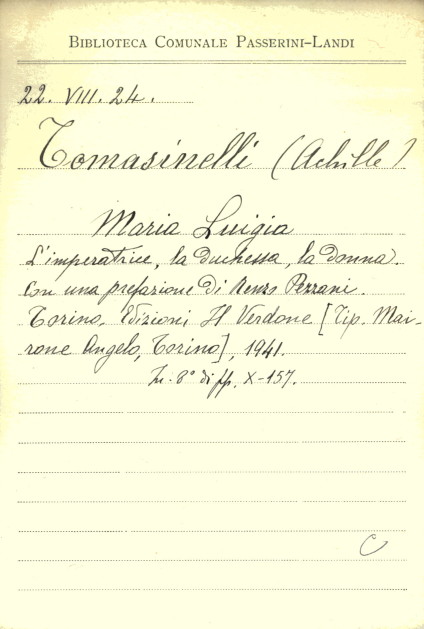 BIBLIOTECA COMUNALE PASSERINI-LANDI
22. VIII. 24.
Tomasinelli (Achille)
Maria Luigia
L'imperatrice, la duchessa, la donna.
Con una prefazione di Renzo Pezzani.
Torino. Edizioni Il Verdone [Tip. Mai-
rone Angelo, Torino], 1941.
In. 8° di pp. X-157.
C